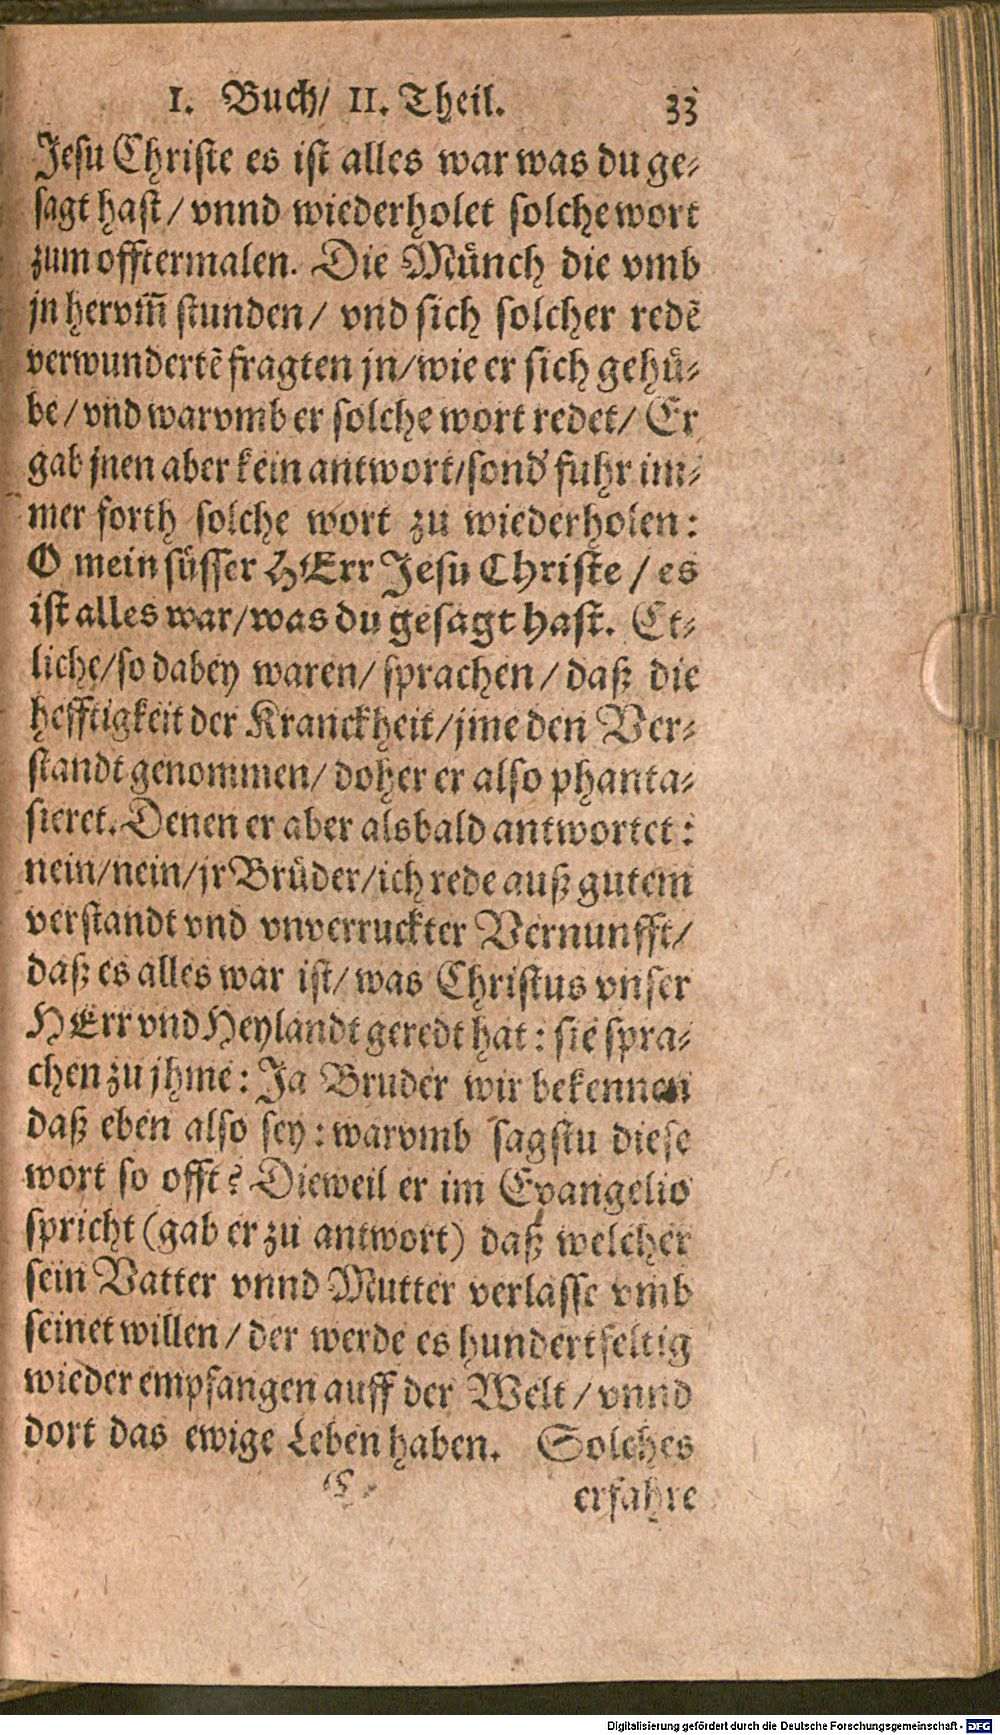 I. Buch/ II. Theil. 33
Jesu Christe es ist alles war was du ge-
sagt hast/ vnnd wiederholet solche wort
zum offtermalen. Die Münch die vmb
jn hervm̃ stunden/ vnd sich solcher redẽ
verwundertẽ fragten jn/wie er sich gehü-
be/ vnd warvmb er solche wort redet/ Er
gab jnen aber kein antwort/sond' fuhr im-
mer forth solche wort zu wiederholen:
O mein süsser HErr Jesu Christe/ es
ist alles war/was du gesagt hast. Et-
liche/so dabey waren/ sprachen/ daß die
hefftigkeit der Kranckheit/jme den Ver-
standt genommen/ doher er also phanta-
sieret. Denen er aber alsbald antwortet:
nein/nein/jr Brüder/ich rede auß gutem
verstandt vnd vnverruckter Vernunfft/
daß es alles war ist/ was Christus vnser
HErr vnd Heylandt geredt hat: sie spra-
chen zu jhme: Ja Bruder wir bekennen
daß eben also sey: warvmb sagstu diese
wort so offt? Dieweil er im Evangelio
spricht (gab er zu antwort) daß welcher
sein Vatter vnnd Mutter verlasse vmb
seinet willen/ der werde es hundertfeltig
wieder empfangen auff der Welt/ vnnd
dort das ewige Leben haben. Solches
erfahre
Digitalisierung gefördert durch die Deutsche Forschungsgemeinschaft - DFG